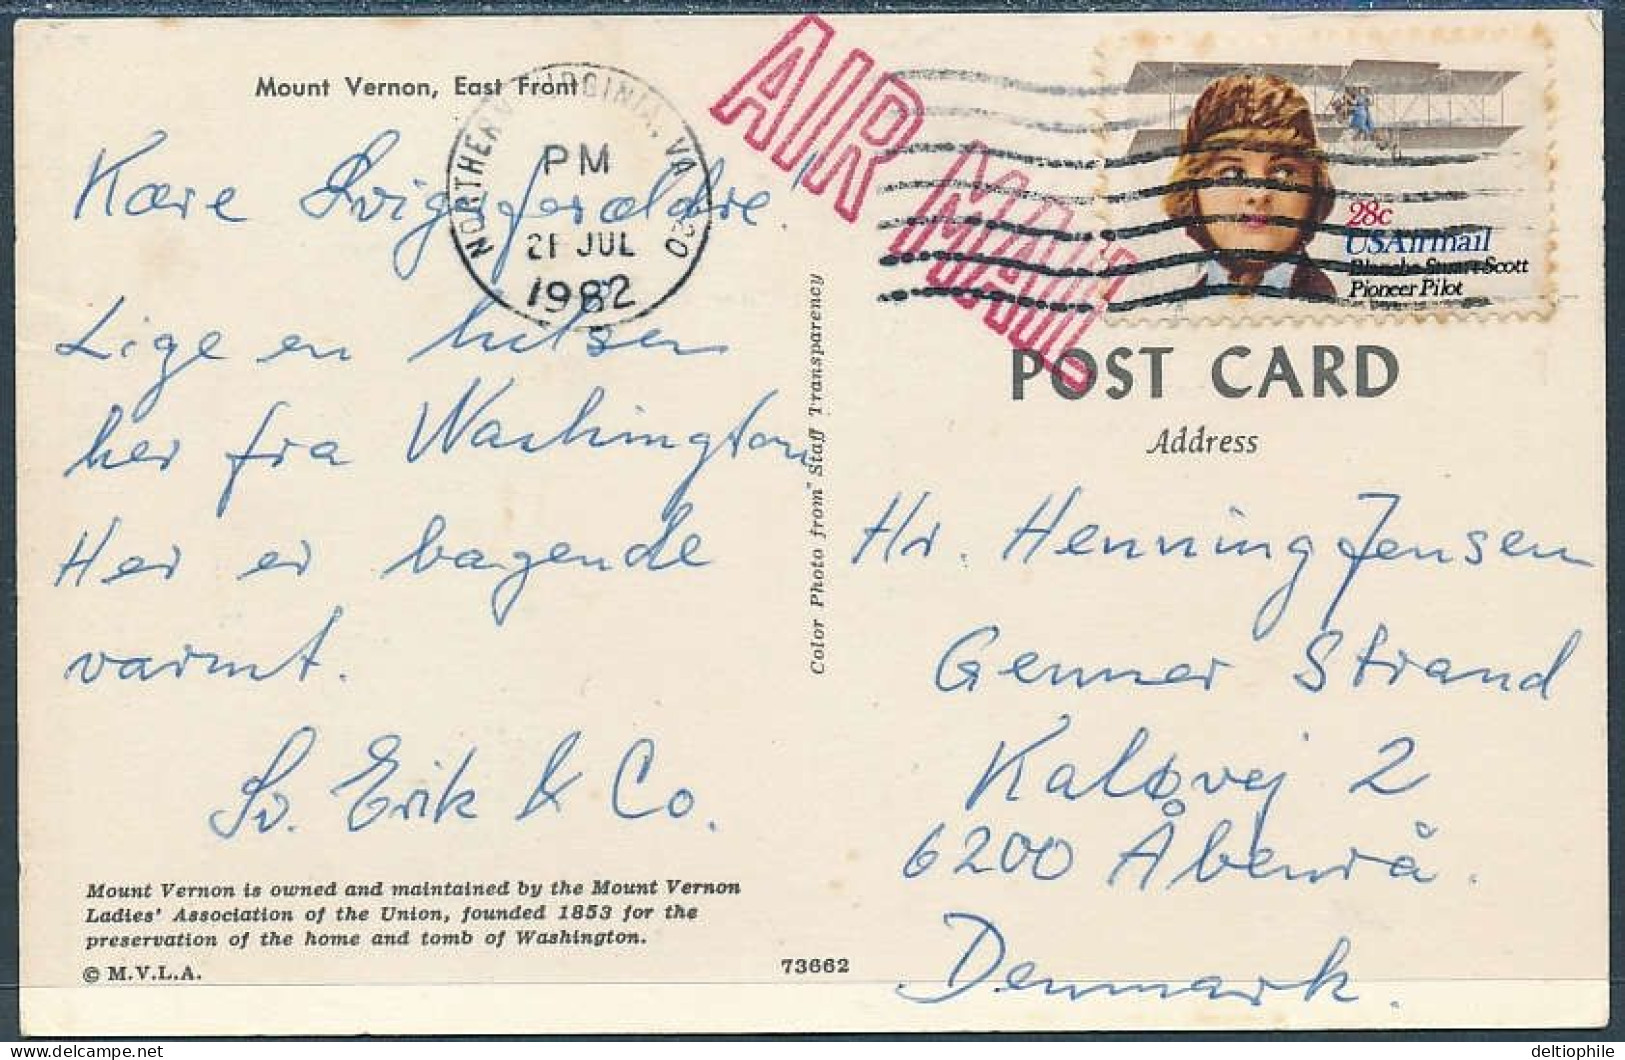 Mount Vernon, East Front
Kære Svigerforældre!
Lige en hilsen
her fra Washington.
Her er bagende
varmt.
Sv. Erik & Co.
Mount Vernon is owned and maintained by the Mount Vernon
Ladies' Association of the Union, founded 1853 for the
preservation of the home and tomb of Washington.
© M.V.L.A.
73662
Color Photo from "Staff Transparency
NORTHERN VIRGINIA, VA 220
PM
21 JUL
1982
AIR MAIL
28c
USAirmail
Blanche Stuart Scott
Pioneer Pilot
POST CARD
Address
Hr. Henning Jensen
Genner Strand
Kaløvej 2
6200 Åbenrå.
Denmark.
deltiophile